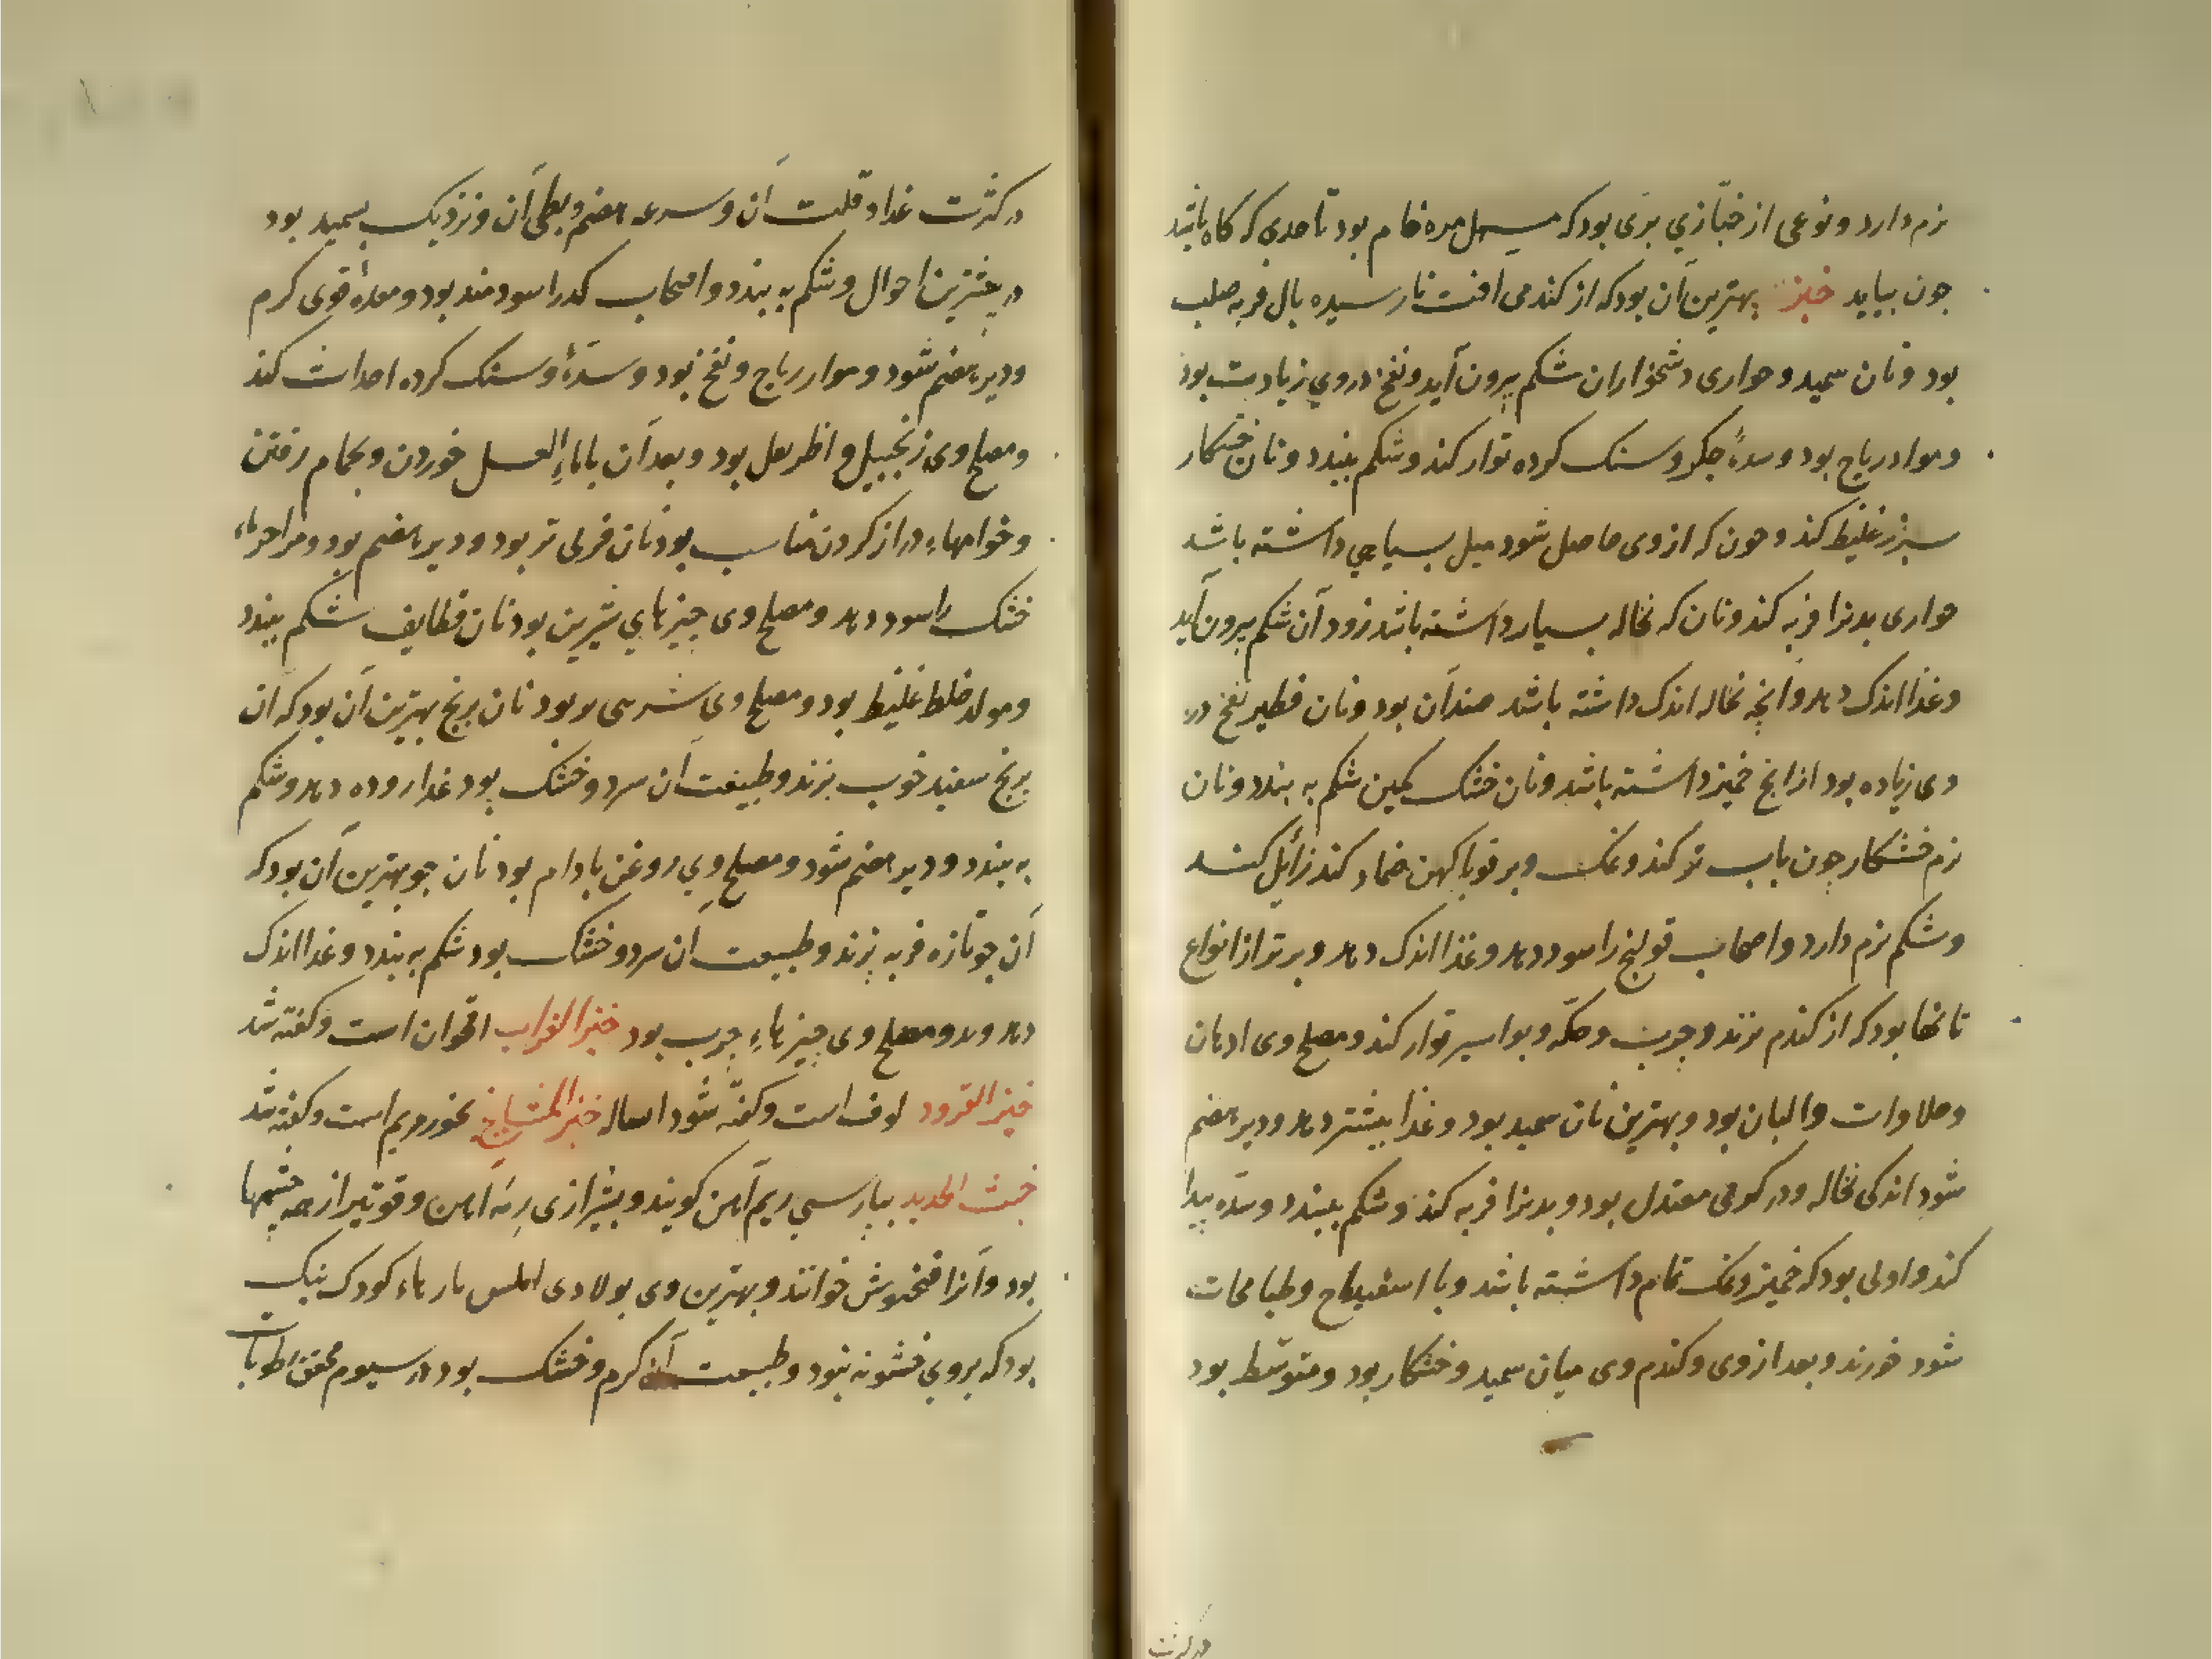 نرم دارد و نوعی از خبّازي برّی بود که مسهل مره خام بود تا حدی که کاه باشد
جون بیاید خبز بهترین آن بود که از کندمی افت نارسیده بال فربه صلب
بود و نان سمید و حواری دشخواران شکم بیرون آید و نفخ در وي زیادت بود
و مواد ریاح بود و سدهٔ جکر و سنک کرده تواد کند و شکم ببندد و نان خشکار
سپرز غلیظ کند و خون که از وی حاصل شود میل بسیاهي داشته باشد
حواری بدنرا فربه کند و نان که نخاله بسیار داشته باشد زود آن شکم بیرون آید
و غذا اندک دهد و آنچه نخاله اندک داشته باشد ضد آن بود و نان فطیر نفخ در
وی زیاده بود از آنچ خمیر داشته باشد و نان خشک کهین شکم به بندد و نان
نرم خشکار جون باب تر کند و نمک و بر قوبا کهن ضماد کند زائل کند
و شکم نرم دارد و اصحاب قولنج را سود دهد و غذا اندک دهد و برتر از انواع
نانها بود که از کندم بزند و جرب و حکّه و بواسیر تواد کند و مصلح وی ادهان
و حلاوات و البان بود و بهترین نان سمید بود و غذا بیشتر دهد و دیر هضم
شود اندکی نخاله و در کرمی معتدل بود و بدنرا فربه کند و شکم ببندد و سدّه پیدا
کند و اولی بود که خمیر و نمک تمام داشته باشد و با اسفیدباج و طباهجات
شود خورند و بعد از وی و کندم وی میان سمید و خشکار بود و متوسّط بود
در کثرت
در کثرت غذا و قلت آن و سرعه هضم و بطی آن و نزدیک بسمید بود
در بیشترین احوال و شکم به بندد و اصحاب کدرا سودمند بود و معدهٔ قوی کرم
و دیر هضم شود و مواد ریاح و نفخ بود و سدّهٔ و سنک کرده احداث کند
و مصلح وی زنجبیل و اطریفل بود و بعد آن با ماءِ العسل خوردن و بحمام رفتن
و خوابهاءِ دراز کردن مناسب بود نان فرنی تر بود و دیر هضم بود و مزاجهاء
خشک را سود دهد و مصلح وی جیزهاي شیرین بود نان قطایف شکم ببندد
و مولد خلط غلیظ بود و مصلح وی بود نان برنج بهترین آن بود که آن
برنج سفید خوب بزند و طبیعت آن سرد و خشک بود غذا روده دهد و شکم
به بندد و دیر هضم شود و مصلح وي روغن بادام بود نان جو بهترین آن بود که
آن جو تازه فربه بزند و طبیعت آن سرد و خشک بود شکم به بندد و غذا اندک
دهد و مصلح وی جیزهاءِ جرب بود خبز الغراب اقحوان است و کفته شد
خبز القرود لوف است و کفته شود خبز المشایخ بخور مریم است و کفته شد
خبث الحدید ببارسي ریم آهن کویند و بشیرازی ریه آهن و قوتیر از همه خبثها
بود و آنرا فنجنوش خوانند و بهترین وی بولادی املس کوذک نیک
بود که بروی خشونه نبود و طبیعت آن کرم و خشک بود در سیوم